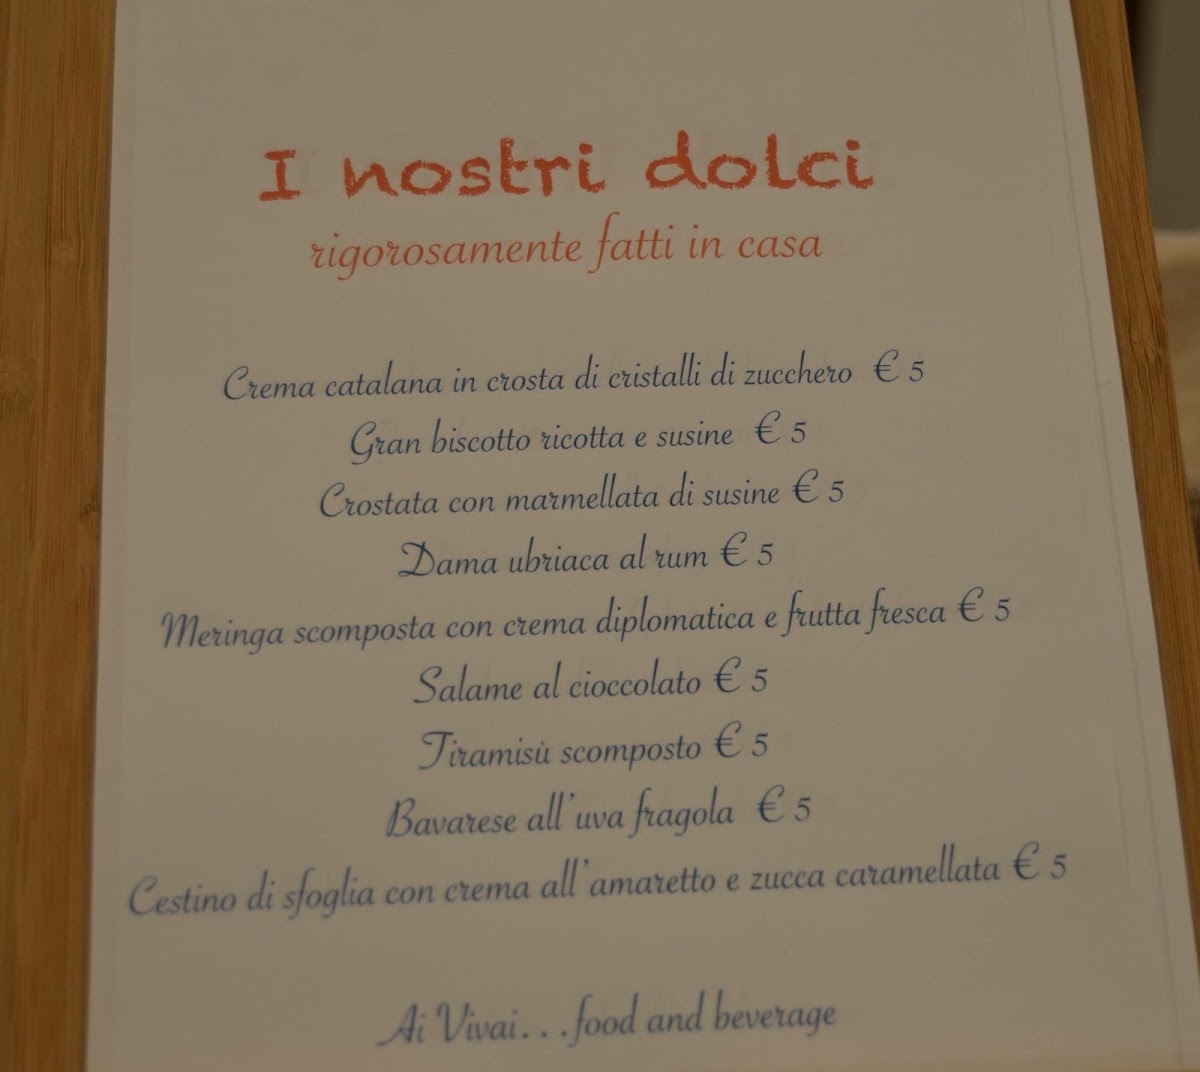 I nostri dolci
rigorosamente fatti in casa
Crema catalana in crosta di cristalli di zucchero € 5
Gran biscotto ricotta e susine € 5
Crostata con marmellata di susine € 5
Dama ubriaca al rum € 5
Meringa scomposta con crema diplomatica e frutta fresca € 5
Salame al cioccolato € 5
Tiramisù scomposto € 5
Bavarese all'uva fragola € 5
Cestino di sfoglia con crema all'amaretto e zucca caramellata € 5
Ai Vivai...food and beverage